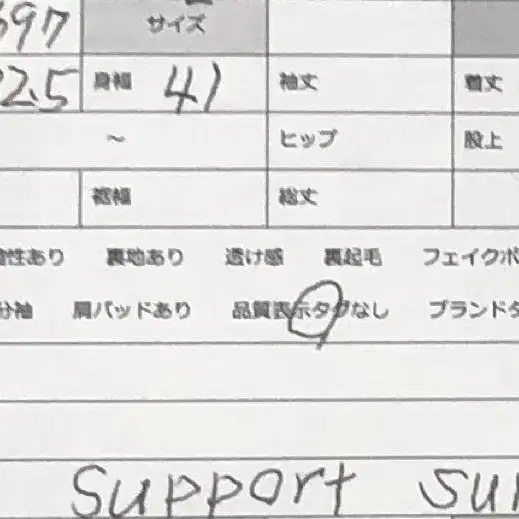 697 サイズ
2.5 身幅 41 袖丈 着丈
～ ヒップ 股上
裾幅 総丈
性あり 裏地あり 透け感 裏起毛 フェイクポ
分袖 肩パッドあり 品質表示タグなし ブランドタ
support sur